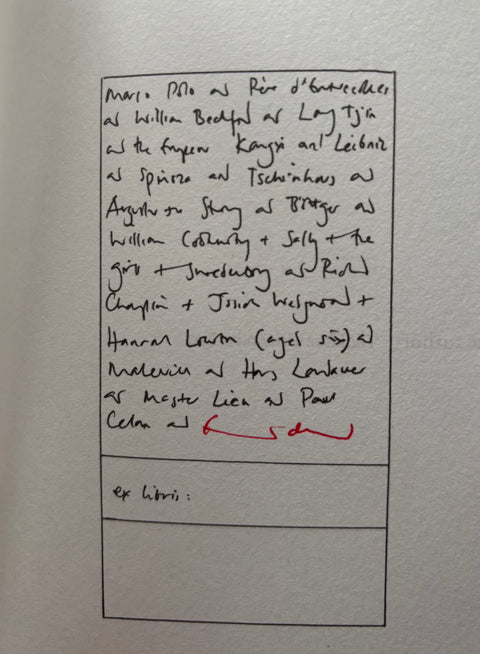 Marco Polo and Père d'Entrecolles
and William Beckford and Lang Tjin
and the Emperor Kangxi and Leibniz
and Spinoza and Tschirnhaus and
Augustus the Strong and Böttger and
William Cookworthy + Sally + the
girls + Swedenborg and Richd
Champion + Josiah Wedgwood +
Hannah (aged six) and
Malevich and Hans Landauer
and Master Lieu and Paul
Celan and
ex libris: